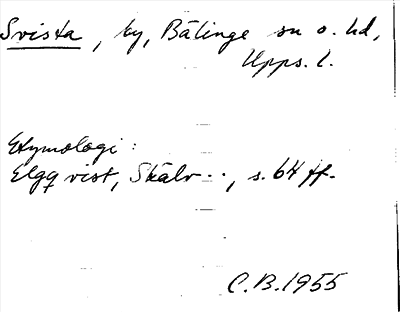 Svista, by, Bälinge sn o. hd,
Upps. l.
Etymologi:
Elgqvist, Skälv.., s. 64 ff.
C.B. 1955